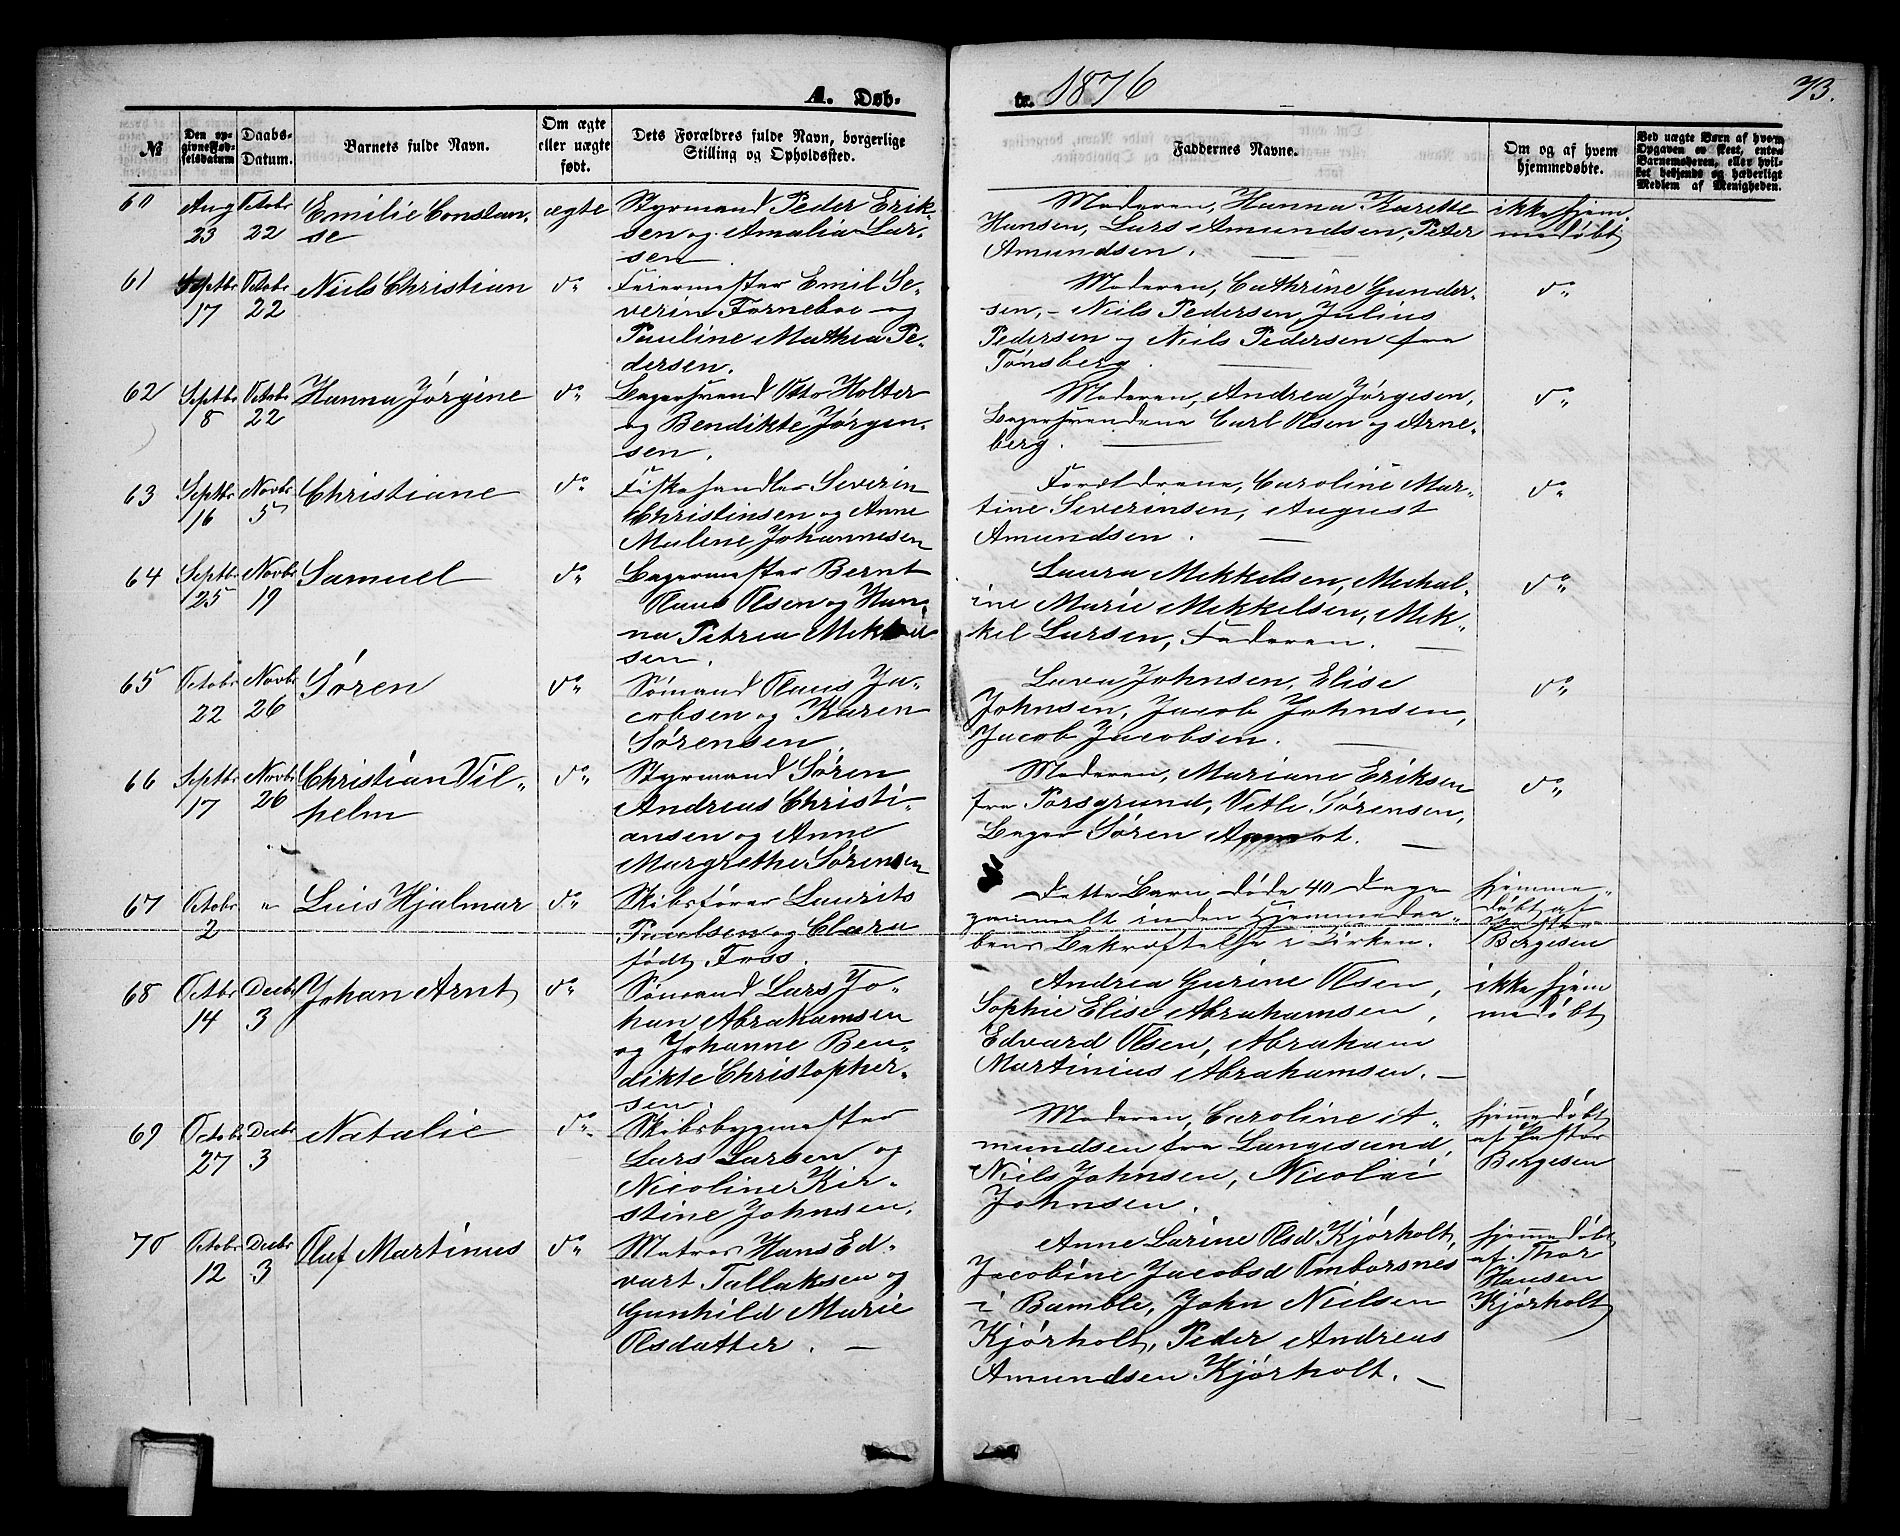 A. Døb-
te. 1876
73.
№
Den opgivne Fødselsdatum
Daabs-Datum.
Barnets fulde Navn.
Om ægte eller uægte født.
Dets Forældres fulde Navn, borgerlige Stilling og Opholdssted.
Faddernes Navne.
Om og af hvem hjemmedøbte.
Ved uægte Børn af hvem Opgaven er skeet, enten Barnemoderen, eller hvilket bekjendt og hæderligt Medlem af Menigheden.
60
Aug 23
Octobr 22
Emilie Constan-
se
ægte
Styrmand Peder Erik-
sen og Amalia Lar-
sen
Moderen, Hanna Karette
Hansen, Lars Amundsen, Peter
Amundsen.
ikke hjem-
medøbt
61
Septbr 17
Octobr 22
Niels Christian
do
Feiermester Emil Se-
verin Fornebo og
Pauline Mathea Pe-
dersen.
Moderen, Cathrine Gunder-
sen, Niels Pedersen, Julius
Pedersen og Niels Pedersen fra
Tønsberg.
do
62
Septbr 8
Octobr 22
Hanna Jørgine
do
Bagersvend Otto Holter
og Bendikte Jørgen-
sen.
Moderen, Andrea Jørgesen,
Bagersvendene Carl Olsen og Arne-
berg.
do
63
Septbr 16
Novbr 5
Christiane
do
Fiskehandler Severin
Christinsen og Anne
Malene Johannesen
Forældrene, Caroline Mar-
tine Severinsen, August
Amundsen.
do
64
Septbr 25
Novbr 19
Samuel
do
Bagermester Bernt
Olaus Olsen og Han-
na Petrea Mikkel
sen.
Laura Mikkelsen, Mickal-
ine Marie Mikkelsen, Mik-
kel Larsen, Faderen.
do
65
Octobr 22
Novbr 26
Søren
do
Sømand Olaus Ja-
cobsen og Karen
Sørensen
Lava Johnsen, Elise
Johnsen, Jacob Johnsen,
Jacob Jacobsen.
do
66
Septbr 17
Novbr 26
Christian Vil-
helm
do
Styrmand Søren
Andreas Christi-
ansen og Anne
Margrethe Sørensen
Moderen, Mariane Eriksen
fra Porsgrund, Vetle Sørensen,
Bager Søren
do
67
Octobr 2
"
Luis Hjalmar
do
Skibsfører Laurits
Paulsen og Clara
født Foss.
Dette Barn døde 40 Dage
gammelt inden Hjemmedaa-
bens Bekræftelse i Kirken.
hjemme-
døbt af
Pastor
Bergesen
68
Octbr 14
Decbr 3
Johan Arnt
do
Sømand Lars Jo-
han Abrahamsen
og Johanne Ben-
dikte Christopher-
sen.
Andrea Gurine Olsen,
Sophie Elise Abrahamsen,
Edvard Olsen, Abraham
Martinius Abrahamsen.
ikke hjem
medøbt
69
Octobr 27
Decbr 3
Natalie
do
Skibsbygmester
Lars Larsen og
Nicoline Kir-
stine Johnsen.
Moderen, Caroline A-
mundsen fra Langesund,
Niels Johnsen, Nicolai
Johnsen.
hjemmedøbt
af Pastor
Bergesen
70
Octobr 12
Decbr 3
Oluf Martinus
do
Matros Hans Ed-
vart Tallaksen og
Gunhild Marie
Olsdatter.
Anne Larine Olsd Kjørholt,
Jacobine Jacobsd Omborsnes
i Bamble, John Nielsen
Kjørholt, Peder Andreas
Amundsen Kjørholt.
hjemmedøbt
af Thor
Hansen
Kjørholt